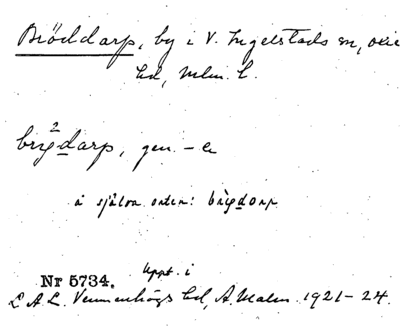 Bröddarp, by i V. Ingelstads sn, oxie
hd, mlm. l.
brÿ²darp, gen. -e
å själva orten: brỳdarp
Nr 5734.
Uppt. i
L. A. L. Vemmenhögs hd, A. Malm. 1921-24.